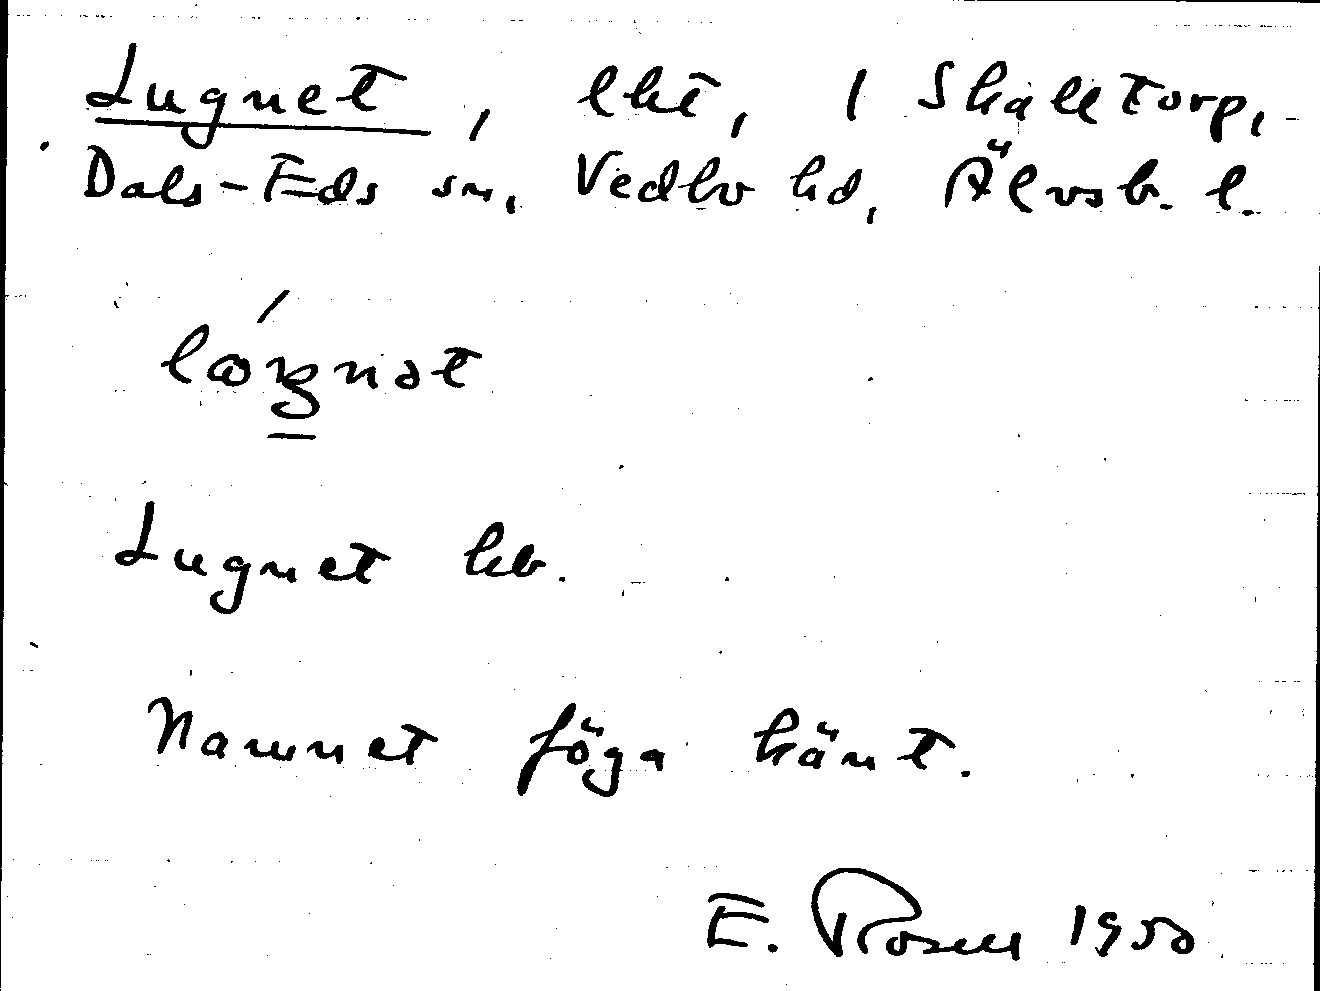 Lugnet, lht, 1 Skälltorp,
Dals-Eds sn, Vedbo hd, Älvsb. l.
Lugnet kb.
Namnet föga känt.
E. Rosell 1950